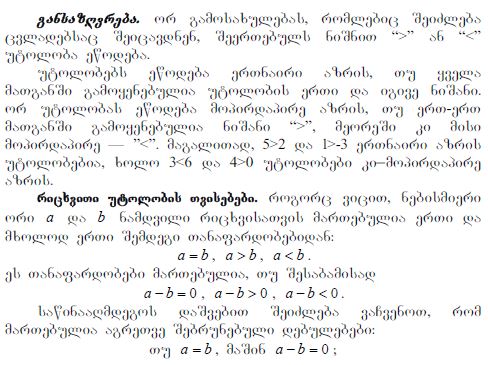 განსაზღვრება. ორ გამოსახულებას, რომლებიც შეიძლება
ცვლადებსაც შეიცავდნენ, შეერთებულს ნიშნით “>” ან “<”
უტოლობა ეწოდება.
უტოლობებს ეწოდება ერთნაირი აზრის, თუ ყველა
მათგანში გამოყენებულია უტოლობის ერთი და იგივე ნიშანი.
ორ უტოლობას ეწოდება მოპირდაპირე აზრის, თუ ერთ-ერთ
მათგანში გამოყენებულია ნიშანი “>”, მეორეში კი მისი
მოპირდაპირე — ”<”. მაგალითად, 5>2 და 1>-3 ერთნაირი აზრის
უტოლობებია, ხოლო 3<6 და 4>0 უტოლობები კი–მოპირდაპირე
აზრის.
რიცხვითი უტოლობის თვისებები. როგორც ვიცით, ნებისმიერი
ორი a და b ნამდვილი რიცხვისათვის მართებულია ერთი და
მხოლოდ ერთი შემდეგი თანაფარდობებიდან:
a = b , a > b , a < b .
ეს თანაფარდობები მართებულია, თუ შესაბამისად
a − b = 0 , a − b > 0 , a − b < 0 .
საწინააღმდეგოს დაშვებით შეიძლება ვაჩვენოთ, რომ
მართებულია აგრეთვე შებრუნებული დებულებები:
თუ a = b , მაშინ a − b = 0 ;